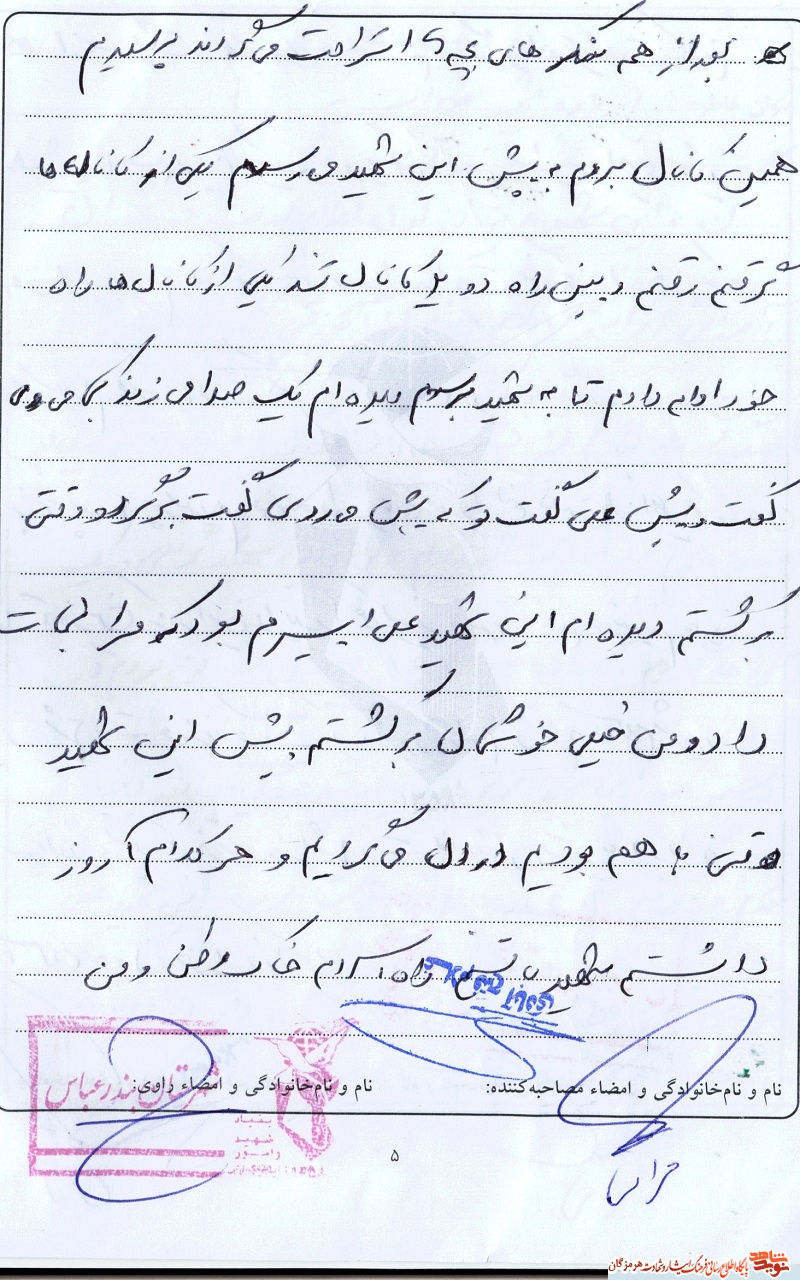 بعد از هم سنگر های بچه ها استراحت می کردند برسیدم
همین کانال بروم به پیش این شهید می رسم یکی از کانال ها
رفتم رفتم دیدن راه دو یک کانال شد یکی از کانال ها راه
خود ادامه دادم تا به شهید برسم دیده ام یک صدا می زند کجا می روی
گفت پیش علی گفت تو که پیش می روی گفت برگرد وقتی
برگشتم دیده ام این شهید علی ایسرم بود که مرا نجات
داد و من خیلی خوشحال برگشتم پیش این شهید
وقتی با هم بودیم درد دل می کردیم و هر کدام آروز
داشتم شهید راه اسلام خاک وطن ومن
نام و نام‌خانوادگی و امضاء مصاحبه‌کننده:
نام و نام‌خانوادگی و امضاء راوی:
شهرستان بندرعباس
بنیاد
شهید
و امور
۵
نوید شاهد
پایگاه اطلاع رسانی فرهنگ ایثار و شهادت هرمزگان